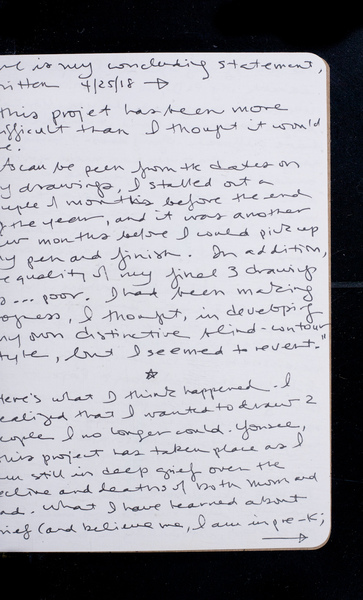 re is my concluding statement,
ritten 4/25/18 →
this projet has been more
ifficult than I thought it would
e.
As can be seen from the dates on
y drawings, I stalled out a
uple of months before the end
f the year, and it was another
ew months before I could pick up
y pen and finish. In addition,
e quality of my final 3 drawings
s... poor. I had been making
ogress, I thought, in developing
y own distinctive blind-contour
tyle, but I seemed to revert."
☆
Here's what I think happened. I
ealized that I wanted to draw 2
eople I no longer could. You see,
this project has taken place as I
am still in deep grief over the
ecline and deaths of both mom and
ad. What I have learned about
rief (and believe me, I am in pre-K;
→